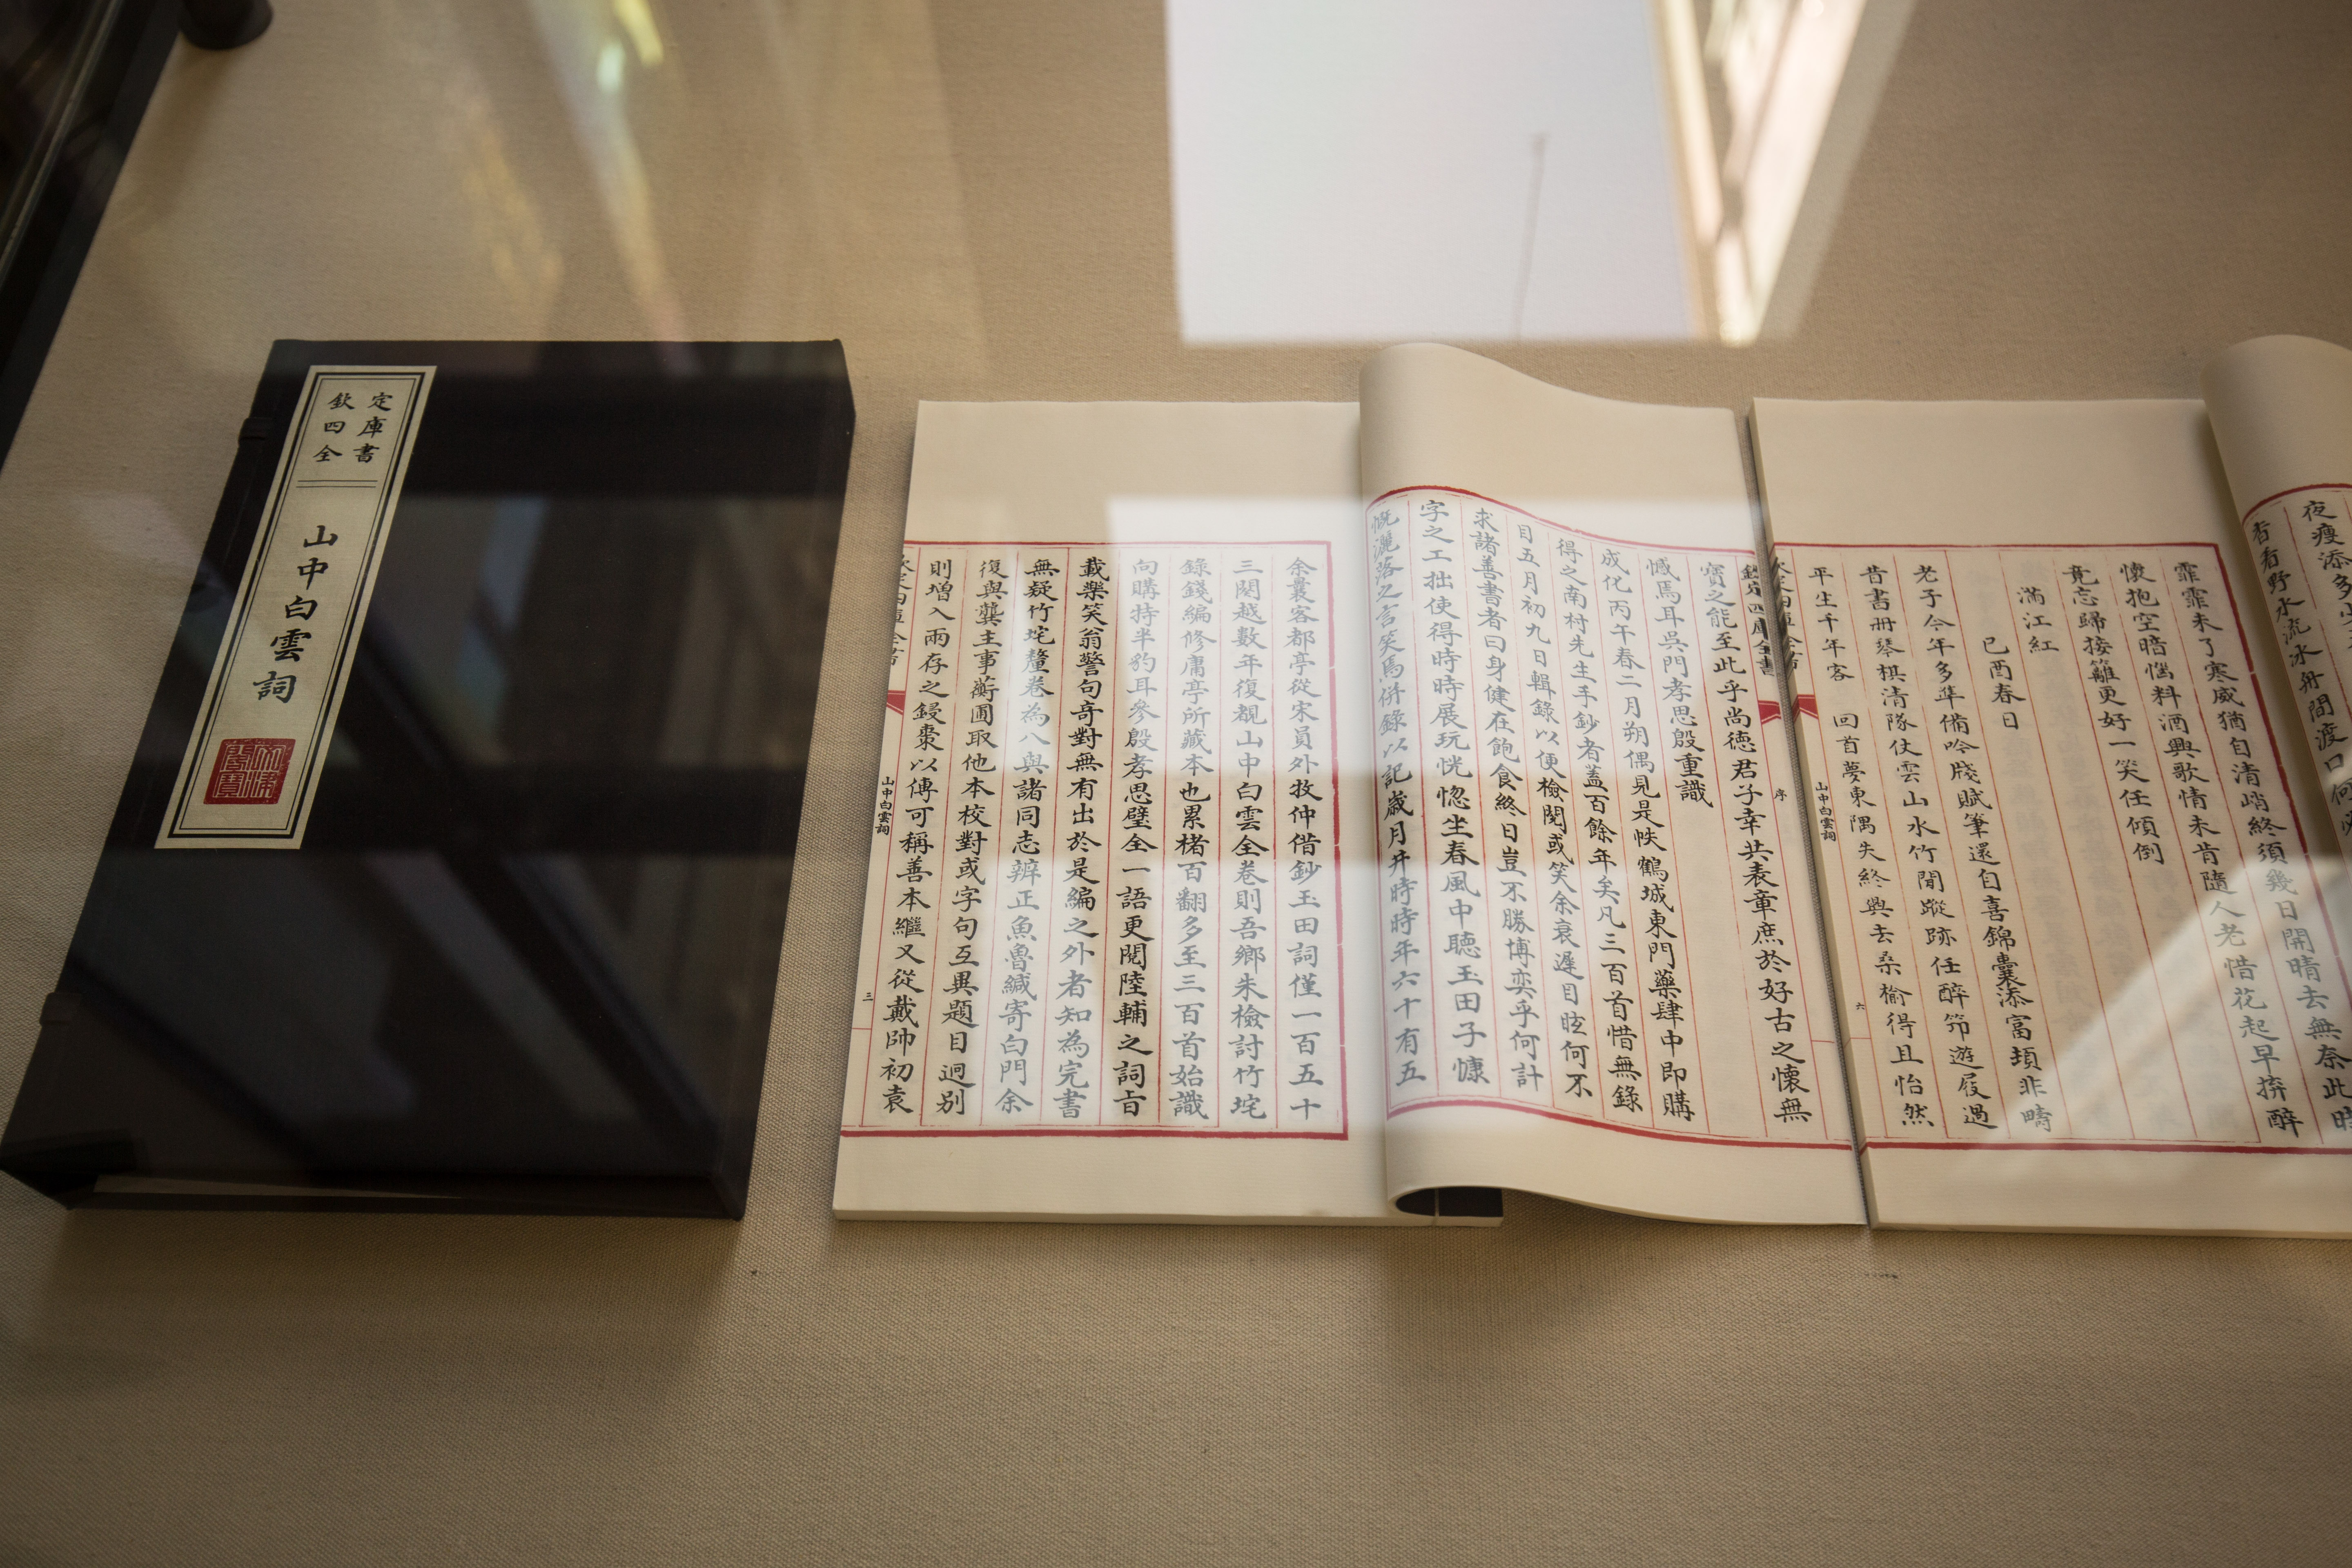 欽定
四庫
全書
山中白雲詞
文淵閣寶
欽定四庫全書
序
寶之能至此乎尚徳君子幸共表章庶於好古之懷無
憾焉耳吳門孝思殷重識
成化丙午春二月朔偶見是帙鶴城東門藥肆中即購
得之南村先生手鈔者蓋百餘年矣凡三百首惜無錄
目五月初九日輯錄以便檢閱或笑余衰遲目眩何不
求諸善書者曰身健在飽食終日豈不勝博奕乎何計
字之工拙使得時時展玩恍惚坐春風中聽玉田子慷
慨灑落之言笑焉併錄以記歲月井時時年六十有五
余曩客都亭從宋員外牧仲借鈔玉田詞僅一百五十
三闋越數年復覩山中白雲全卷則吾鄉朱檢討竹垞
錄錢編修庸亭所藏本也累楮百翻多至三百首始識
向購持半豹耳參殷孝思璧全一語更閱陸輔之詞旨
載樂笑翁警句奇對無有出於是編之外者知為完書
無疑竹垞釐卷為八與諸同志辨正魚魯緘寄白門余
復與龔主事蘅圃取他本校對或字句互異題目迥别
則增入兩存之鋟棗以傳可稱善本繼又從戴帥初袁
欽定四庫全書
山中白雲詞
三
夜瘦添多少
杳看野水流冰舟閒渡口何必
開晴去無奈此時
霏霏未了寒威猶自清峭終須幾日
懷抱空暗惱料酒興歌情未肯隨人老惜花起早拚醉
竟忘歸接籬更好一笑任傾倒
滿江紅
己酉春日
老子今年多準備吟牋賦筆還自喜錦囊添富頓非疇
昔書册琴棋清隊仗雲山水竹閒蹤跡任醉笻遊屐過
平生千年客　回首夢東隅失終興去桑榆得且怡然
欽定四庫全書
山中白雲詞
六